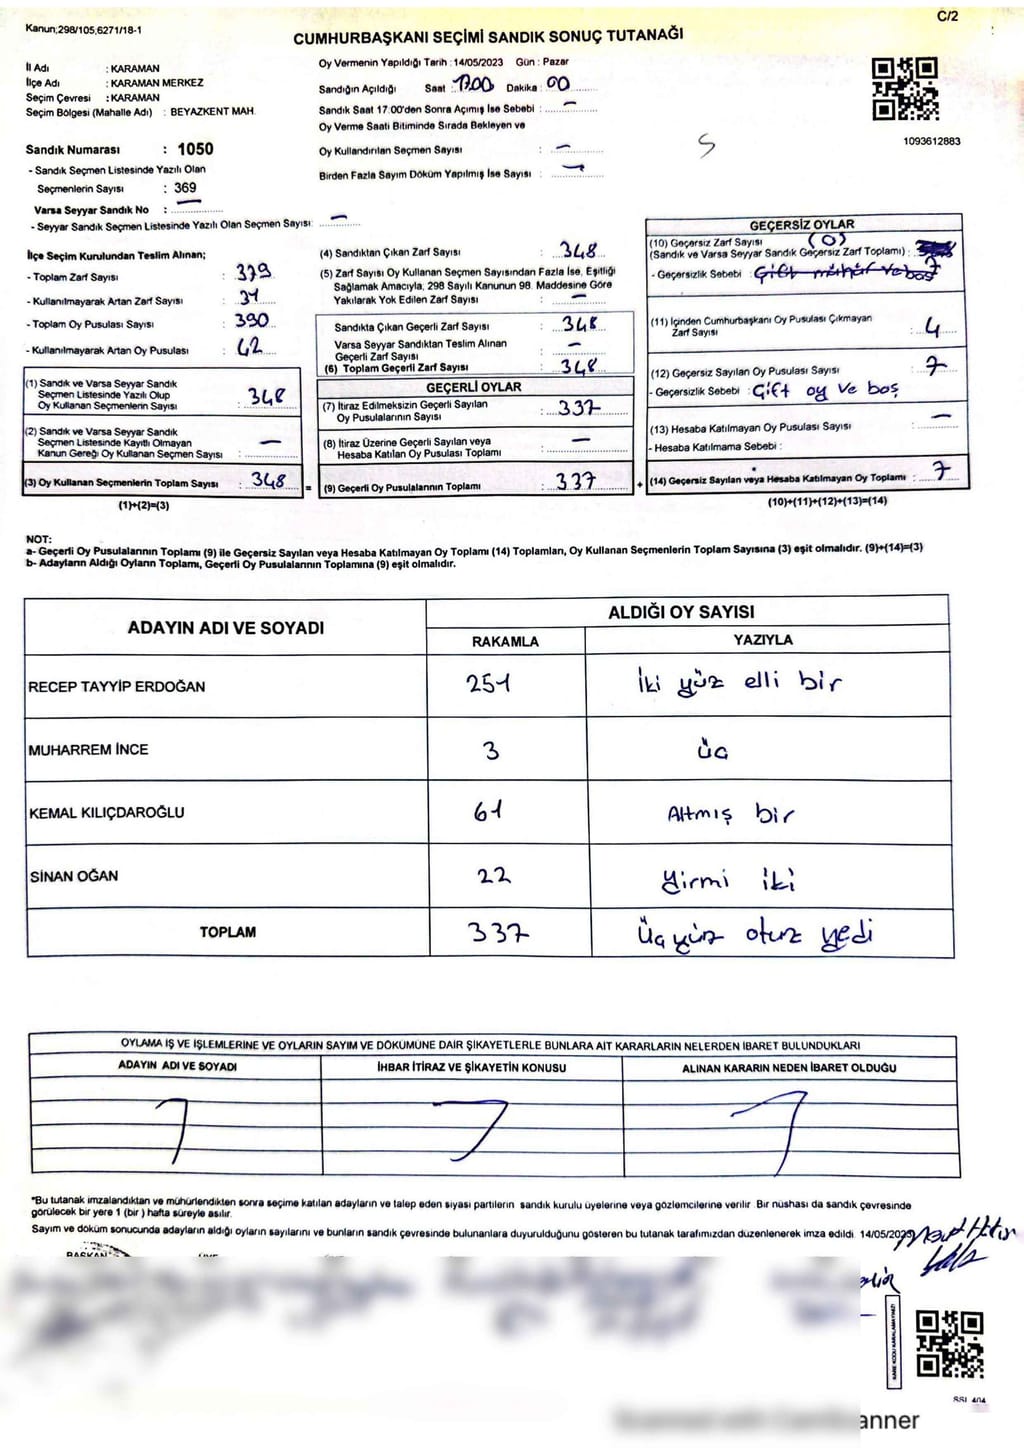 Kanun;298/105,6271/18-1
C/2
CUMHURBAŞKANI SEÇİMİ SANDIK SONUÇ TUTANAĞI
İl Adı : KARAMAN
İlçe Adı : KARAMAN MERKEZ
Seçim Çevresi : KARAMAN
Seçim Bölgesi (Mahalle Adı) : BEYAZKENT MAH.
Oy Vermenin Yapıldığı Tarih : 14/05/2023 Gün : Pazar
Sandığın Açıldığı Saat : 17.00 Dakika : 00
Sandık Saat 17:00'den Sonra Açımış İse Sebebi : —
Oy Verme Saati Bitiminde Sırada Bekleyen ve
Oy Kullandırılan Seçmen Sayısı : —
Birden Fazla Sayım Döküm Yapılmış İse Sayısı : —
1093612883
Sandık Numarası : 1050
- Sandık Seçmen Listesinde Yazılı Olan
Seçmenlerin Sayısı : 369
Varsa Seyyar Sandık No : —
- Seyyar Sandık Seçmen Listesinde Yazılı Olan Seçmen Sayısı: —
İlçe Seçim Kurulundan Teslim Alınan;
- Toplam Zarf Sayısı : 379
- Kullanılmayarak Artan Zarf Sayısı : 31
- Toplam Oy Pusulası Sayısı : 390
- Kullanılmayarak Artan Oy Pusulası : 42
(1) Sandık ve Varsa Seyyar Sandık
Seçmen Listesinde Yazılı Olup
Oy Kullanan Seçmenlerin Sayısı : 348
(2) Sandık ve Varsa Seyyar Sandık
Seçmen Listesinde Kayıtlı Olmayan
Kanun Gereği Oy Kullanan Seçmen Sayısı : —
(3) Oy Kullanan Seçmenlerin Toplam Sayısı : 348 =
(1)+(2)=(3)
(4) Sandıktan Çıkan Zarf Sayısı : 348
(5) Zarf Sayısı Oy Kullanan Seçmen Sayısından Fazla İse, Eşitliği
Sağlamak Amacıyla, 298 Sayılı Kanunun 98. Maddesine Göre
Yakılarak Yok Edilen Zarf Sayısı : —
Sandıkta Çıkan Geçerli Zarf Sayısı : 348
Varsa Seyyar Sandıktan Teslim Alınan
Geçerli Zarf Sayısı : —
(6) Toplam Geçerli Zarf Sayısı : 348
GEÇERLİ OYLAR
(7) İtiraz Edilmeksizin Geçerli Sayılan
Oy Pusulalarının Sayısı : 337
(8) İtiraz Üzerine Geçerli Sayılan veya
Hesaba Katılan Oy Pusulası Toplamı : —
(9) Geçerli Oy Pusulalarının Toplamı : 337 +
GEÇERSİZ OYLAR
(10) Geçersiz Zarf Sayısı (0)
(Sandık ve Varsa Seyyar Sandık Geçersiz Zarf Toplamı) :
- Geçersizlik Sebebi : Çift mühür ve boş 7
(11) İçinden Cumhurbaşkanı Oy Pusulası Çıkmayan
Zarf Sayısı : 4
(12) Geçersiz Sayılan Oy Pusulası Sayısı : 7
- Geçersizlik Sebebi : Çift oy ve boş
(13) Hesaba Katılmayan Oy Pusulası Sayısı : —
- Hesaba Katılmama Sebebi :
(14) Geçersiz Sayılan veya Hesaba Katılmayan Oy Toplamı : 7
(10)+(11)+(12)+(13)=(14)
NOT:
a- Geçerli Oy Pusulalarının Toplamı (9) ile Geçersiz Sayılan veya Hesaba Katılmayan Oy Toplamı (14) Toplamları, Oy Kullanan Seçmenlerin Toplam Sayısına (3) eşit olmalıdır. (9)+(14)=(3)
b- Adayların Aldığı Oyların Toplamı, Geçerli Oy Pusulalarının Toplamına (9) eşit olmalıdır.
ADAYIN ADI VE SOYADI
ALDIĞI OY SAYISI
RAKAMLA YAZIYLA
RECEP TAYYİP ERDOĞAN 251 İki yüz elli bir
MUHARREM İNCE 3 üç
KEMAL KILIÇDAROĞLU 61 Altmış bir
SİNAN OĞAN 22 Yirmi iki
TOPLAM 337 Üç yüz otuz yedi
OYLAMA İŞ VE İŞLEMLERİNE VE OYLARIN SAYIM VE DÖKÜMÜNE DAİR ŞİKAYETLERLE BUNLARA AİT KARARLARIN NELERDEN İBARET BULUNDUKLARI
ADAYIN ADI VE SOYADI İHBAR İTİRAZ VE ŞİKAYETİN KONUSU ALINAN KARARIN NEDEN İBARET OLDUĞU
*Bu tutanak imzalandıktan ve mühürlendikten sonra seçime katılan adayların ve talep eden siyasi partilerin sandık kurulu üyelerine veya gözlemcilerine verilir. Bir nüshası da sandık çevresinde
görülecek bir yere 1 (bir ) hafta süreyle asılır.
Sayım ve döküm sonucunda adayların aldığı oyların sayılarını ve bunların sandık çevresinde bulunanlara duyurulduğunu gösteren bu tutanak tarafımızdan düzenlenerek imza edildi. 14/05/2023
BAŞKAN
KARE KODU KARALAMAYINIZ!
anner